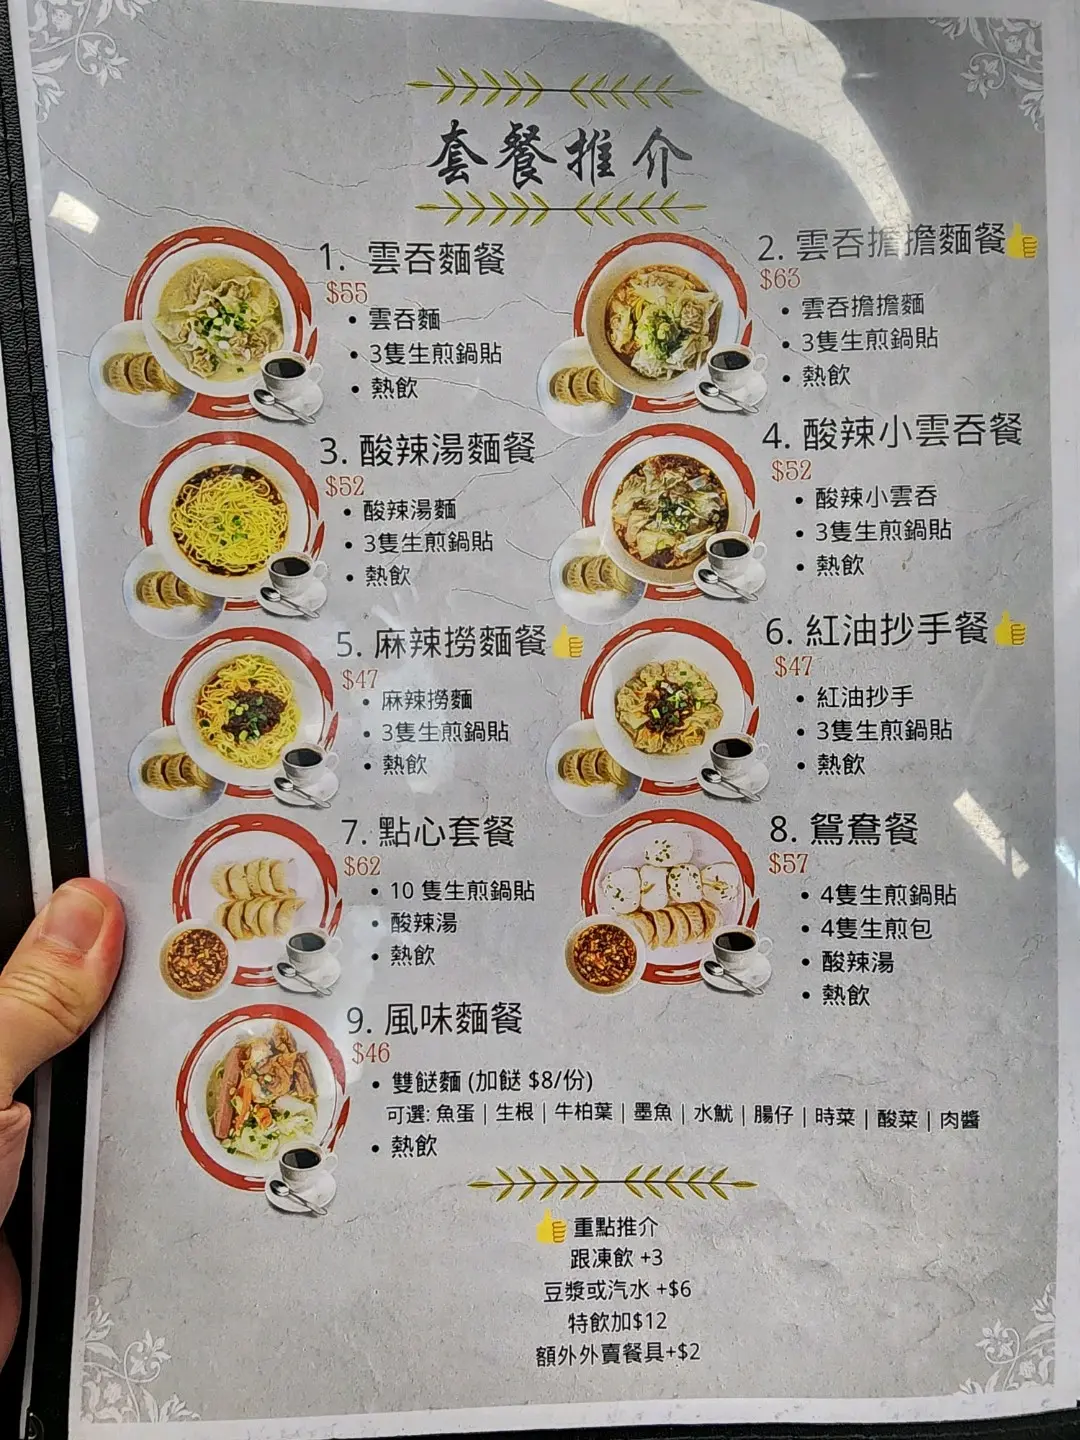 套餐推介
1. 雲吞麵餐
$55
• 雲吞麵
• 3隻生煎鍋貼
• 熱飲
2. 雲吞擔擔麵餐
$63
• 雲吞擔擔麵
• 3隻生煎鍋貼
• 熱飲
3. 酸辣湯麵餐
$52
• 酸辣湯麵
• 3隻生煎鍋貼
• 熱飲
4. 酸辣小雲吞餐
$52
• 酸辣小雲吞
• 3隻生煎鍋貼
• 熱飲
5. 麻辣撈麵餐
$47
• 麻辣撈麵
• 3隻生煎鍋貼
• 熱飲
6. 紅油抄手餐
$47
• 紅油抄手
• 3隻生煎鍋貼
• 熱飲
7. 點心套餐
$62
• 10 隻生煎鍋貼
• 酸辣湯
• 熱飲
8. 鴛鴦餐
$57
• 4隻生煎鍋貼
• 4隻生煎包
• 酸辣湯
• 熱飲
9. 風味麵餐
$46
• 雙餸麵 (加餸 $8/份)
可選: 魚蛋 | 生根 | 牛柏葉 | 墨魚 | 水魷 | 腸仔 | 時菜 | 酸菜 | 肉醬
• 熱飲
重點推介
跟凍飲 +3
豆漿或汽水 +$6
特飲加$12
額外外賣餐具+$2